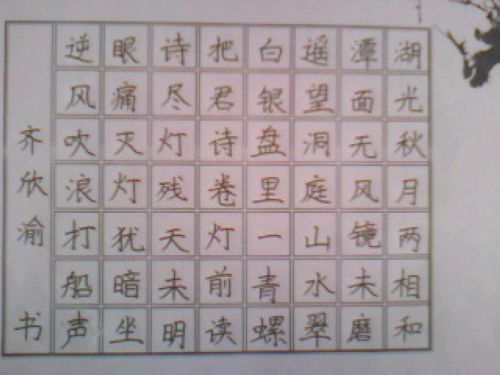 湖光秋月两相和
潭面无风镜未磨
遥望洞庭山水翠
白银盘里一青螺
把君诗卷灯前读
诗尽灯残天未明
眼痛灭灯犹暗坐
逆风吹浪打船声
齐欣渝书